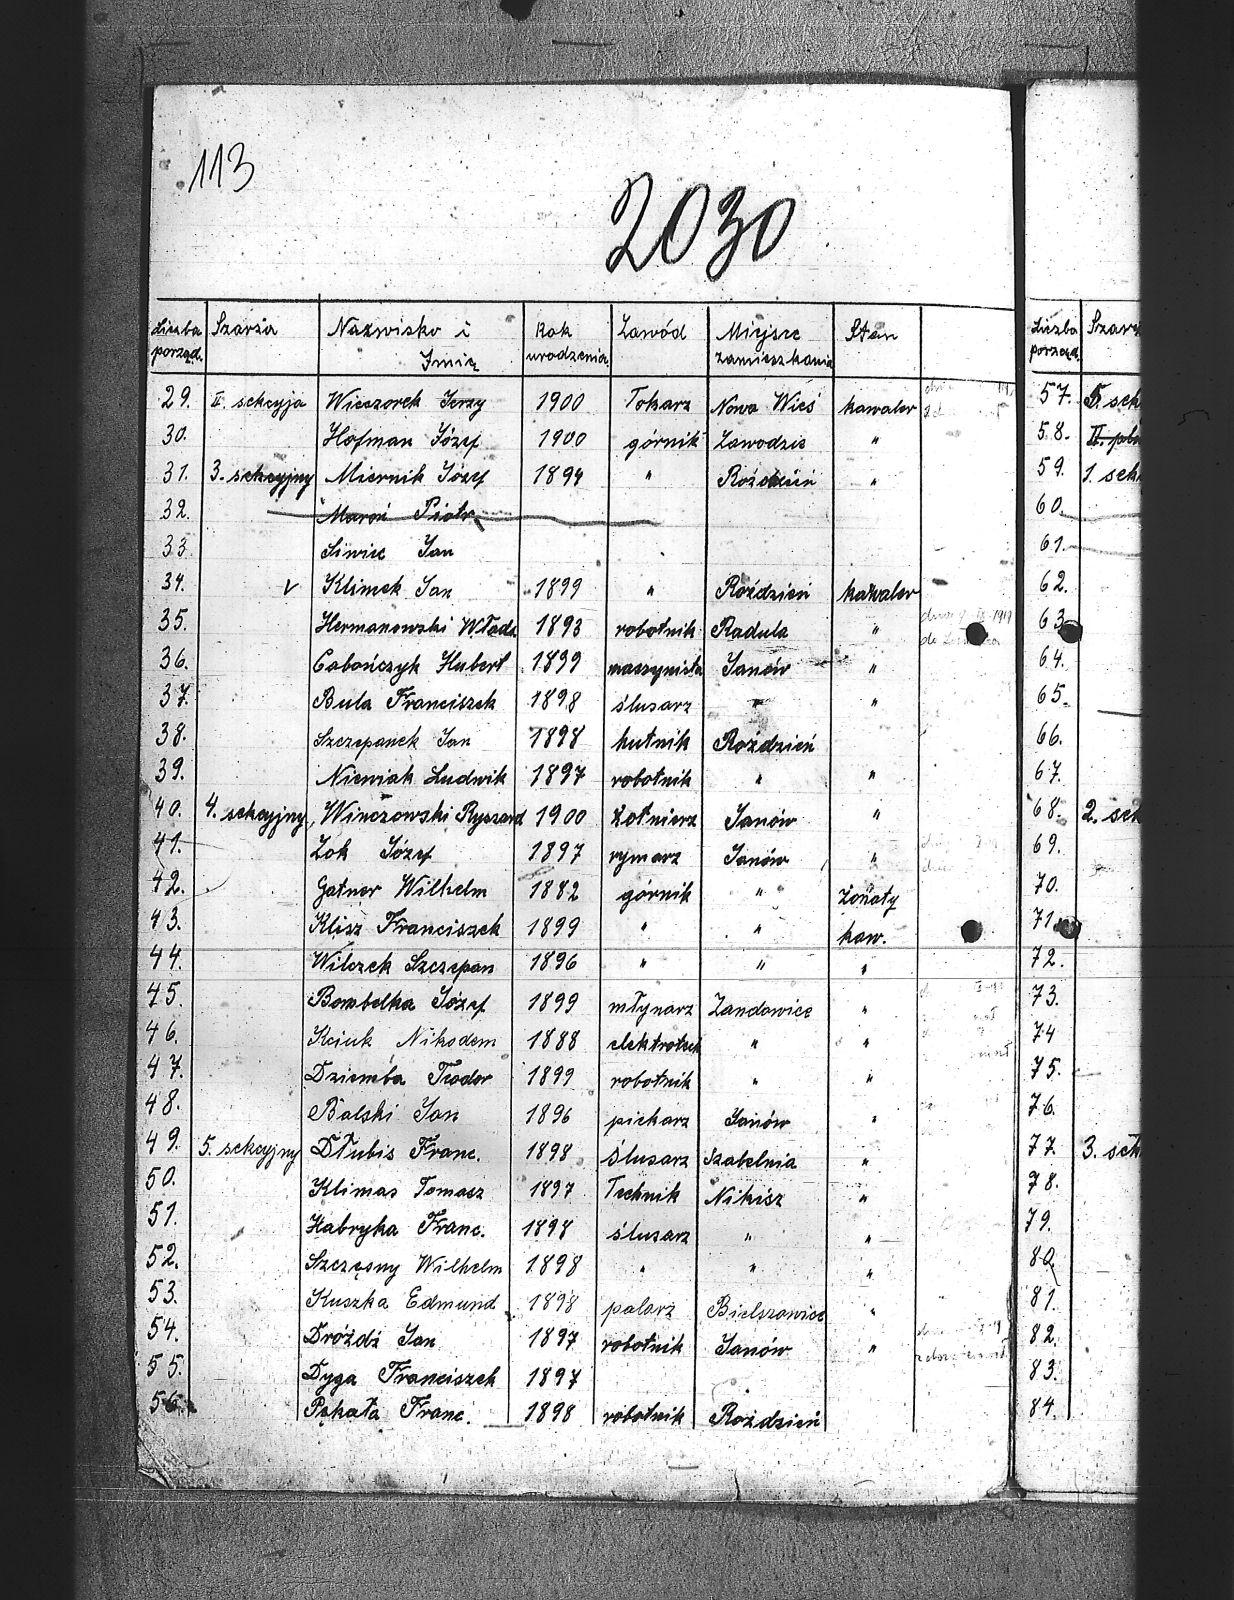 113
2030
Liczba porząd. Szarża Nazwisko i Imię Rok urodzenia Zawód Miejsce zamieszkania Stan
29. II sekcyja Wieczorek Jerzy 1900 Tokarz Nowa Wieś kawaler
30. Hofman Józef 1900 górnik Zawodzie "
31. 3. sekcyjny Miernik Józef 1894 " Roździeń "
32. Maroń Piotr
33 Siwiec Jan
34. v Klimek Jan 1899 " Roździeń kawaler
35. Hermanowski Włada 1893 robotnik Radula "
36. Cabończyk Hubert 1899 maszynista Janów "
37. Bula Franciszek 1898 ślusarz " "
38. Szczepanek Jan 1898 hutnik Roździeń
39. Niewiak Ludwik 1897 robotnik " "
40. 4. sekcyjny Winczowski Ryszard 1900 żołnierz Janów "
41. Żok Józef 1897 rymarz Janów "
42. Gatner Wilhelm 1882 górnik " żonaty
43. Klisz Franciszek 1899 " " kaw.
44. Wilczek Szczepan 1896 " " "
45. Bombelka Józef 1899 młynarz Zandowice "
46. Kciuk Nikodem 1888 elektrotech " "
47. Dziemba Teodor 1899 robotnik " "
48. Balski Jan 1896 piekarz Janów "
49. 5. sekcyjny Dłubis Franc. 1898 ślusarz Szabelnia "
50. Klimas Tomasz 1897 Technik Nikisz "
51. Habryka Franc. 1898 ślusarz " "
52. Szczęsny Wilhelm 1898 " " "
53. Kuszka Edmund 1898 palarz Bielszowice "
54. Dróżdż Jan 1897 robotnik Janów "
55. Dyga Franciszek 1897
56. Pękała Franc. 1898 robotnik Roździeń
Liczba porząd. Szar
57. 5. sek
58. II.
59. 1. sek
60.
61.
62.
63
64.
65.
66.
67.
68. 2. sek
69.
70.
71.
72.
73.
74
75.
76.
77. 3. sek
78.
79.
80.
81.
82.
83.
84.